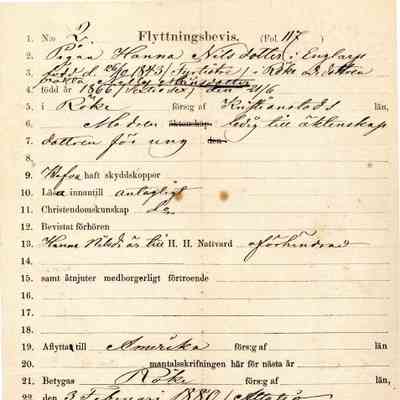 1. N:o 2. Flyttningsbevis. (Fol. 117)
2. Pigan Hanna Nilsdotter i Englarp
3. född d. 26/2 1843 (Fyrtiotre) i Röke &
4. född år 1866 (sextiosex) den 21/6
5. i Röke förs:g af Kristianstads län,
6. Modern äktenskap ledig till äktenskap
7. dottren för ung den
8.
9. Hafva haft skyddskoppor
10. Läsa innantill antagligt
11. Christendomskunskap
12. Bevistat förhören
13. Hanna Nilsd: är till H. H. Nattvard oförhindrad
14.
15. samt åtnjuter medborgerligt förtroende
16.
17.
18.
19. Aflyttat till Amerika förs:g af län
20. mantalsskrifningen här för nästa år
21. Betygas Röke förs:g af län
22. den 3 Februari 1880 (Attatio)